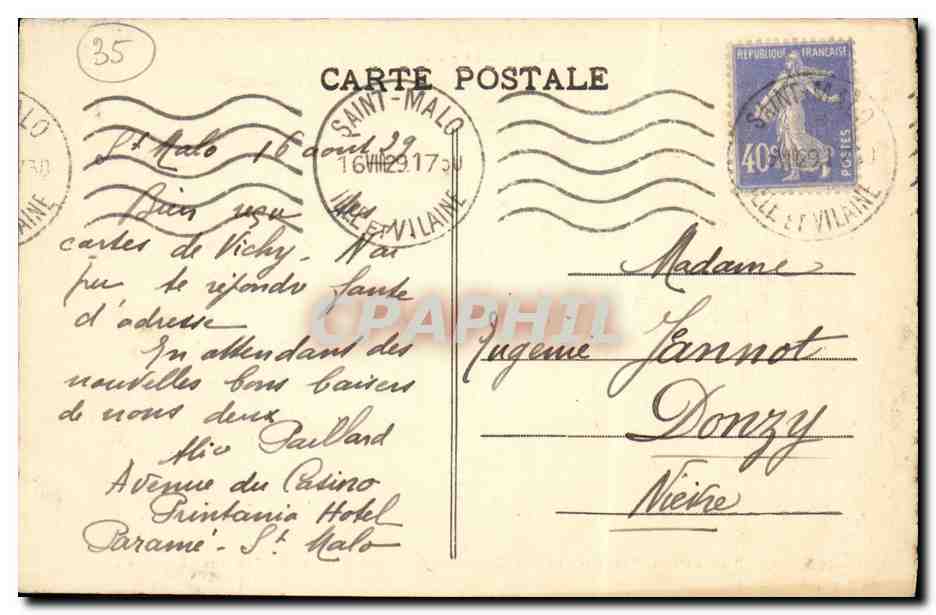 35
CARTE POSTALE
REPUBLIQUE FRANÇAISE
40c
POSTES
SAINT-MALO
16 VIII 29. 17 30
ILLE ET VILAINE
St Malo 16 aout 29
Bien reçu
cartes de Vichy. Nai
pu te répondre faute
d'adresse
En attendant des
nouvelles bons baisers
de nous deux
Paillard
Avenue du Casino
Printania Hotel
Paramé - St Malo
Madame
Eugenie Jannot
Donzy
Nièvre
CPAPHIL